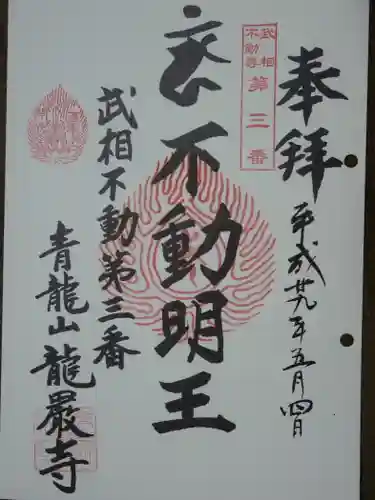 奉拝
平成廿九年五月四日
武相
不動尊
第三番
不動明王
武相不動第三番
青龍山龍巖寺